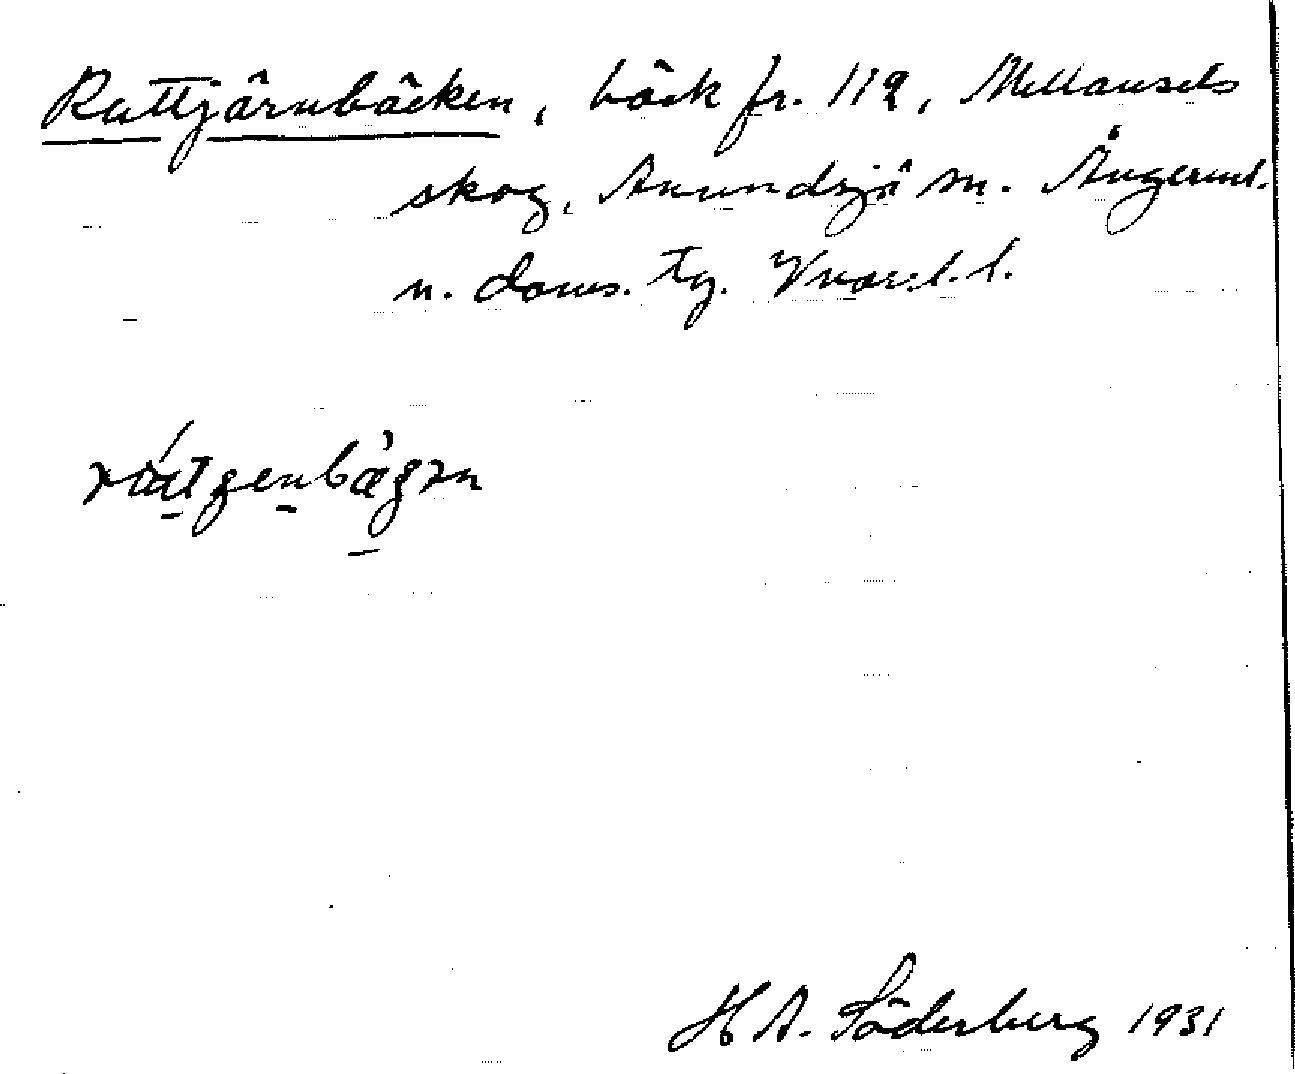 Rattjärnbäcken, bäck fr. 112, Mellansels
skog, Anundsjö sn. Ångerml.
n. doms. tg. V norrl. l.
H A. Söderberg 1931